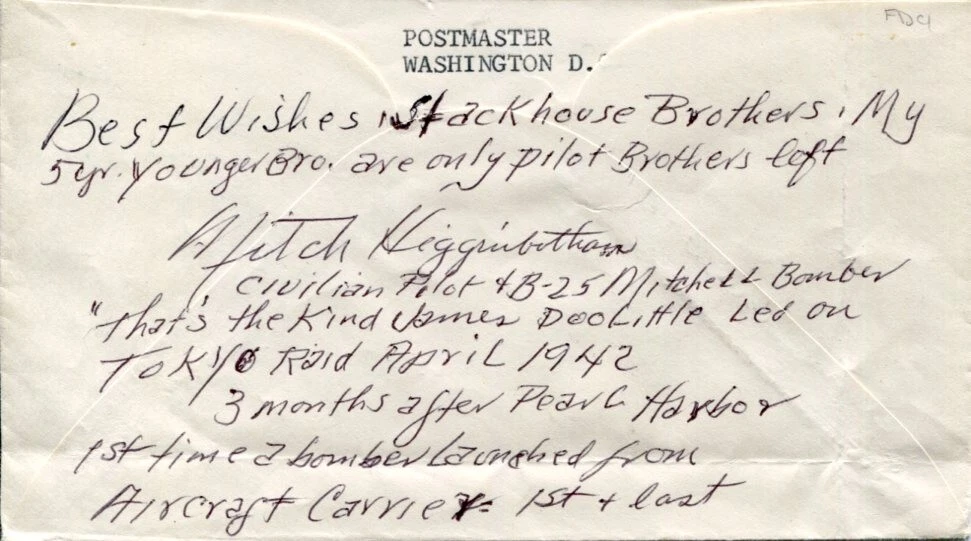 FDC
POSTMASTER
WASHINGTON D.
Best Wishes Stackhouse Brothers. My
5 yr. Younger Bro. are only pilot Brothers left
Mitch Higginbotham
Civilian Pilot + B-25 Mitchell Bomber
"That's the Kind James Doolittle Led on
TOKYO Raid April 1942
3 months after Pearl Harbor
1st time a bomber Launched from
Aircraft Carrier - 1st + last